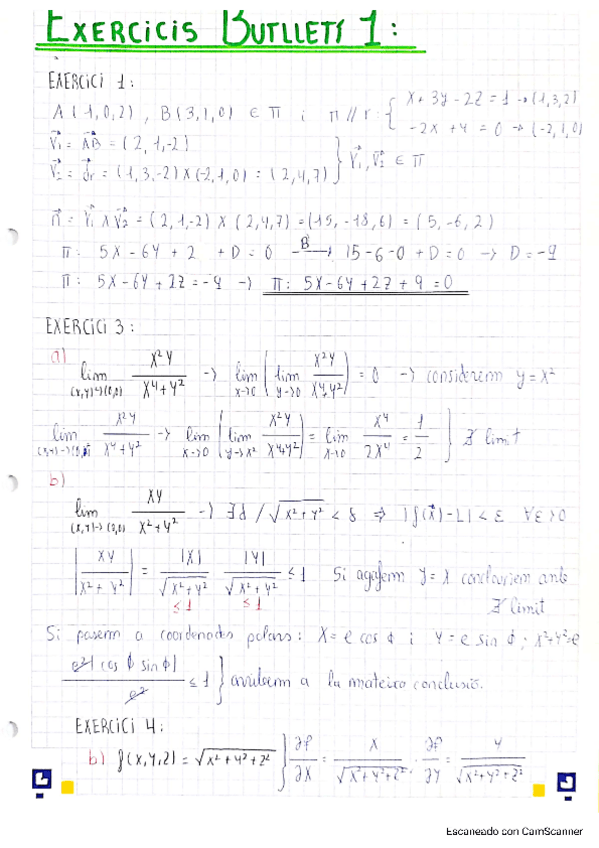 EXERCICIS BUTLLETÍ 1:
EXERCICI 1:
A(1,0,2), B(3,1,0) ∈ π i π // r: { x + 3y - 2z = 1 → (1,3,2)
-2x + y = 0 → (-2,1,0)
v₁ = AB = (2,1,-2)
v₂ = dr = (1,3,-2) x (-2,1,0) = (2,4,7) } v₁, v₂ ∈ π
n = v₁ x v₂ = (2,1,-2) x (2,4,7) = (15,-18,6) = (5,-6,2)
π: 5x - 6y + 2 + D = 0 —B→ 15 - 6 - 0 + D = 0 → D = -9
π: 5x - 6y + 2z = -9 → π: 5x - 6y + 2z + 9 = 0
EXERCICI 3:
a) lim (x,y)→(0,0) x²y / x⁴+y² → lim x→0 ( lim y→0 x²y / x⁴+y² ) = 0 → considerem y = x²
lim (x,y)→(0,0) x²y / x⁴+y² → lim x→0 ( lim y→x² x²y / x⁴+y² ) = lim x→0 x⁴ / 2x⁴ = 1/2 } ∄ limit
b)
lim (x,y)→(0,0) xy / x²+y² → ∃δ / √x²+y² < δ ⇒ |f(x)-L| < ε ∀ε>0
| xy / x²+y² | = |x| / √x²+y² |y| / √x²+y² ≤ 1 Si agafem y = x concluriem amb
≤1 ≤1 ∄ limit
Si pasem a coordenades polars: x = ρ cos φ i y = ρ sin φ; x²+y²=ρ
ρ²| cos φ sin φ| / ρ² ≤ 1 } arribem a la mateixa conclusió.
EXERCICI 4:
b) f(x,y,z) = √x²+y²+z² } ∂f/∂x = x / √x²+y²+z² . ∂f/∂y = y / √x²+y²+z²
Escaneado con CamScanner